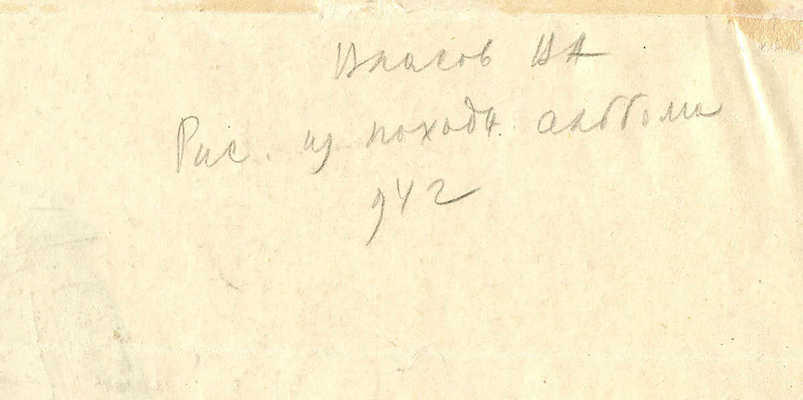 Власов ВА
Рис. из поход. альбома
942